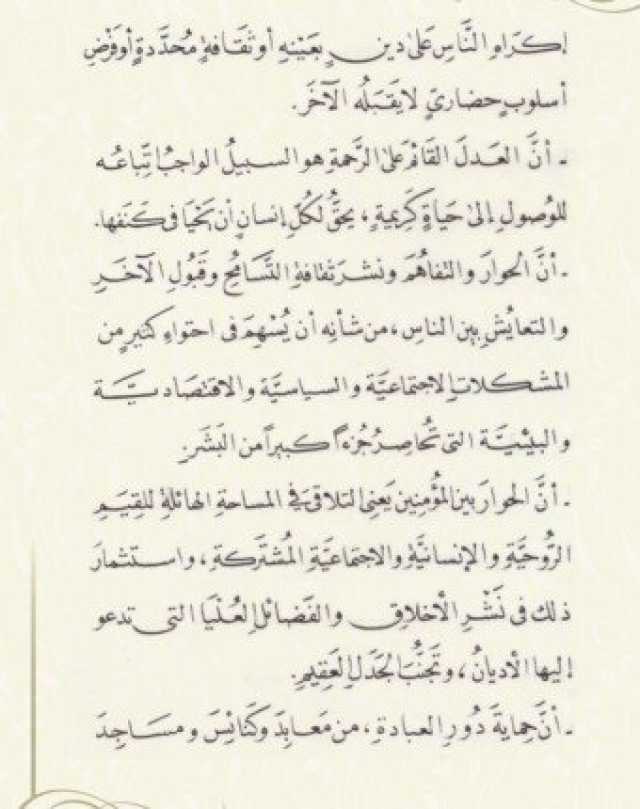 إكراهِ النَّاسِ عَلىٰ دينٍ بعَيْنِهِ أو ثقَافةٍ مُحدَّدةٍ أو فَرْضِ
أسلوبٍ حضاريٍّ لا يَقبَلُه الآخَر.
ـ أنَّ العَدلَ القَائمَ علىٰ الرَّحمةِ هو السبيلُ الواجبُ اتِّباعُه
للوُصولِ إلىٰ حَياةٍ كَرِيمةٍ، يحقُّ لكُلِّ إنسانٍ أن يَحْيَا فى كَنَفِها.
ـ أنَّ الحوارَ والتفاهُمَ ونشرَ ثقافةِ التَّسَامُحِ وقَبُولِ الآخَرِ
والتعايُشِ بين الناسِ، من شأنِه أن يُسْهِمَ فى احتواءِ كثيرٍ من
المشكلاتِ الاجتماعيَّة والسياسيَّة والاقتصاديَّة
والبيْئيَّة التى تُحاصِرُ جُزءًا كبيرًا من البَشَرِ.
ـ أنَّ الحوارَ بين المؤْمِنين يَعنِى التلاقىَ فى المساحةِ الهائلةِ للقِيَمِ
الرُّوحيَّةِ والإنسانيَّةِ والاجتماعيَّةِ المُشتَركةِ، واستثمارَ
ذلك فى نَشْرِ الأخلاقِ والفَضائلِ العُلْيَا التى تدعو
إليها الأديانُ، وتَجنُّبَ الجَدَلِ العَقِيمِ.
ـ أنَّ حِمايةَ دُورِ العبادةِ، من مَعابِدَ وكَنائِسَ ومَساجِدَ